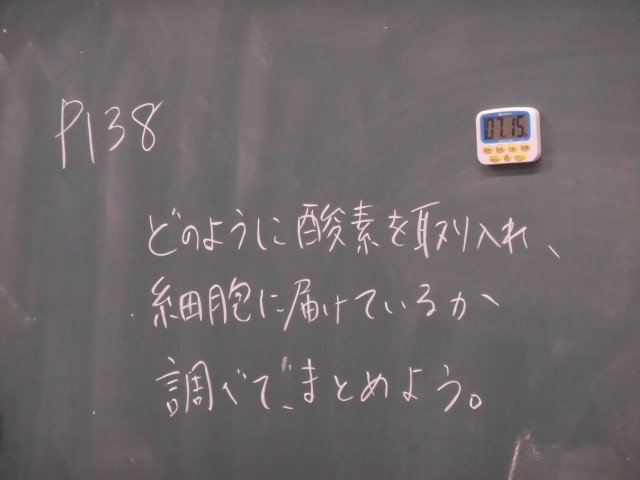 P138
07.15
どのように酸素を取り入れ、
細胞に届けているか、
調べて、まとめよう。